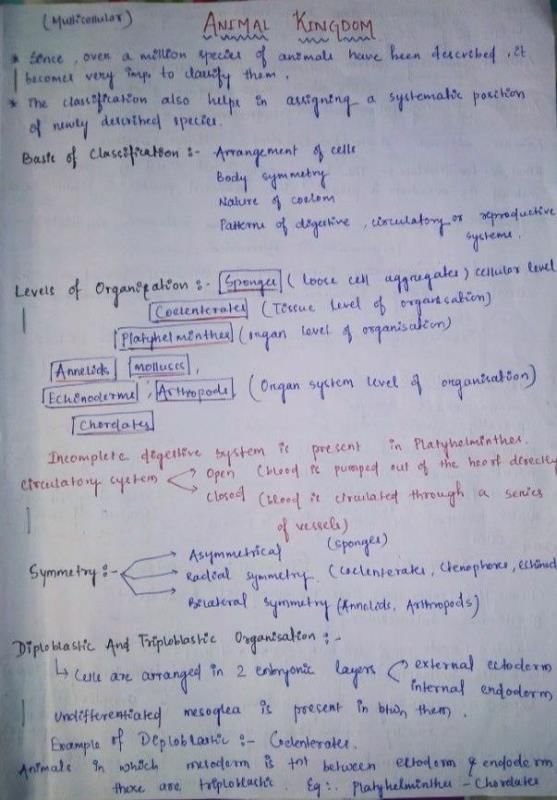 (Multicellular) ANIMAL KINGDOM
* Since, over a million species of animals have been described, it
becomes very imp. to classify them.
* The classification also helps in assigning a systematic position
of newly described species.
Basis of Classification :- Arrangement of cells
Body symmetry
Nature of coelom
Patterns of digestive, circulatory or reproductive
systems.
Levels of Organization :- Sponges (Loose cell aggregates) cellular level
Coelenterates (Tissue level of organisation)
Platyhelminthes (organ level of organisation)
Annelids Molluscs,
Echinoderms, Arthropods (Organ system level of organisation)
Chordates
Incomplete digestive system is present in Platyhelminthes.
Circulatory system Open (blood is pumped out of the heart directly
Closed (blood is circulated through a series
of vessels)
Asymmetrical (sponges)
Symmetry :- Radial symmetry (Coelenterates, Ctenophores, Echinod
Bilateral symmetry (Annelids, Arthropods)
Diploblastic And Triploblastic Organisation :-
↳ Cells are arranged in 2 embryonic layers external ectoderm
internal endoderm
Undifferentiated mesoglea is present in btwn them.
Example of Diploblastic :- Coelenterates.
Animals in which mesoderm is  between ectoderm & endoderm
those are triploblastic. Eg:- Platyhelminthes - Chordates